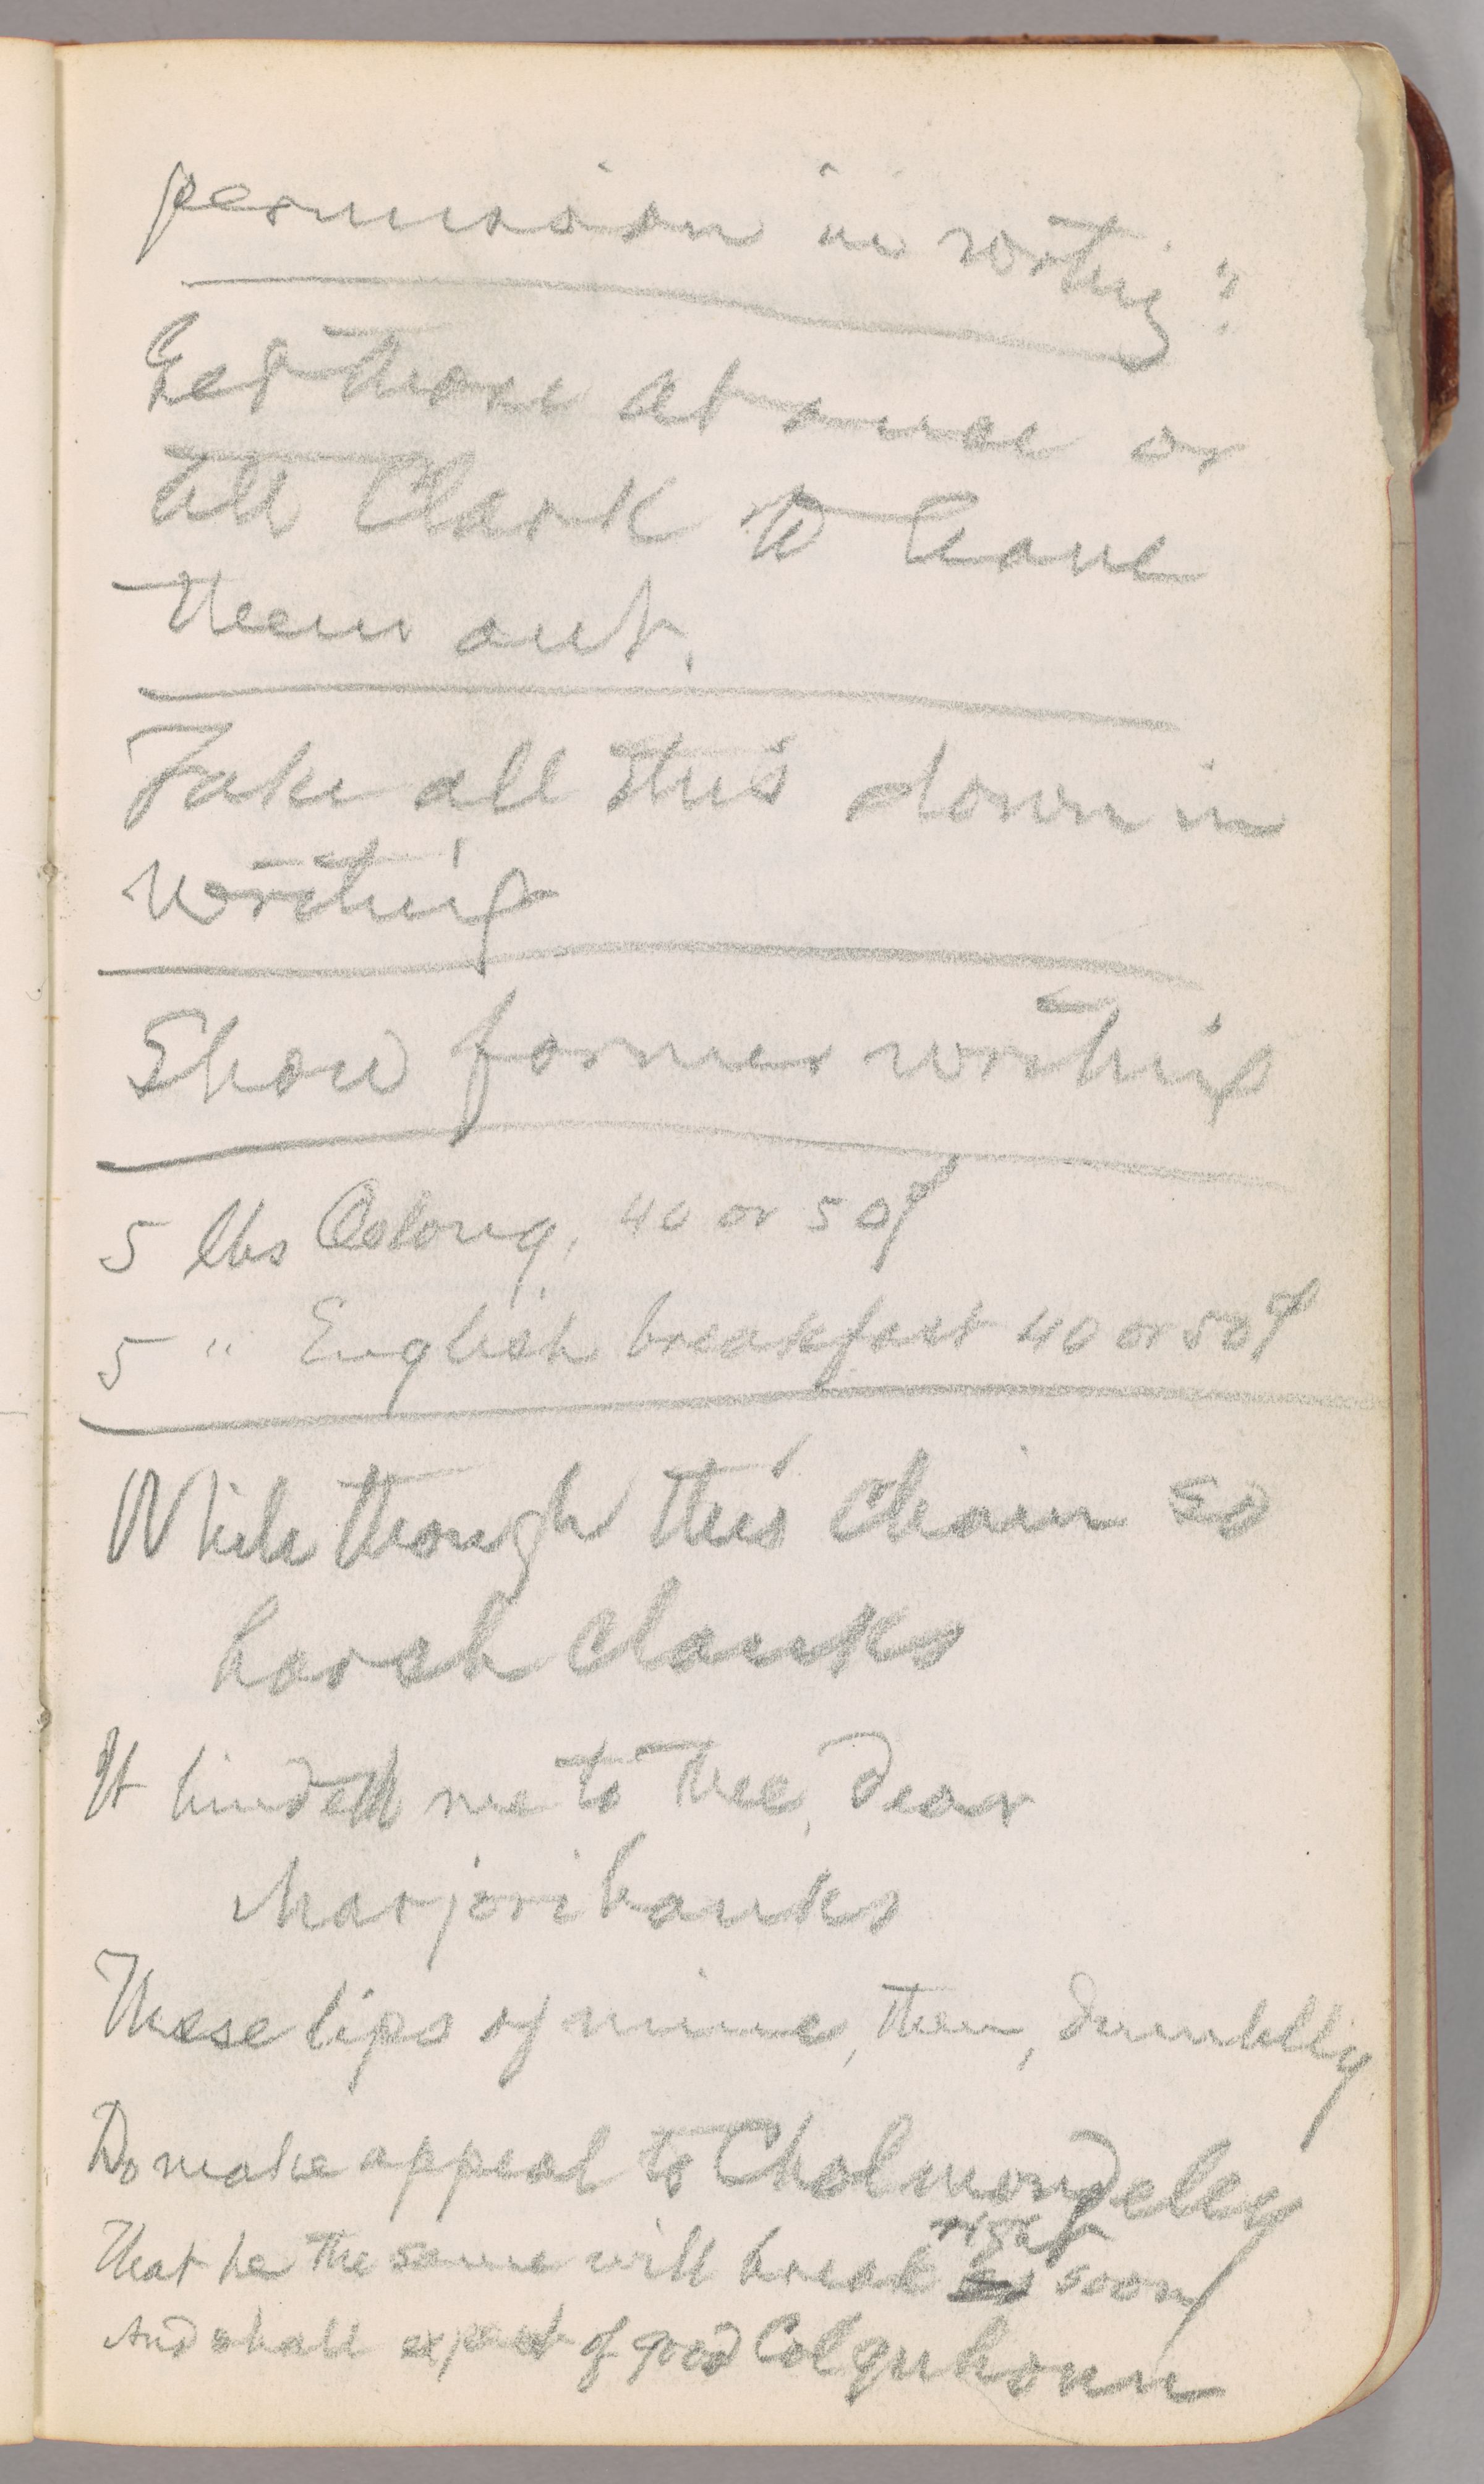 permission in writing?
Get those at once or
tell Clark to leave
them out.
Take all this down in
writing
Show former writing
5 lbs Oolong, 40 or 50¢
5 " English breakfast 40 or 50¢
While though this chain so
harsh clanks
It bindeth me to thee, dear
Marjoribanks
These lips of mine, then, dumbly
Do make appeal to Cholmondeley
That he the same will break right soon,
And shall expect of good Colquhoun